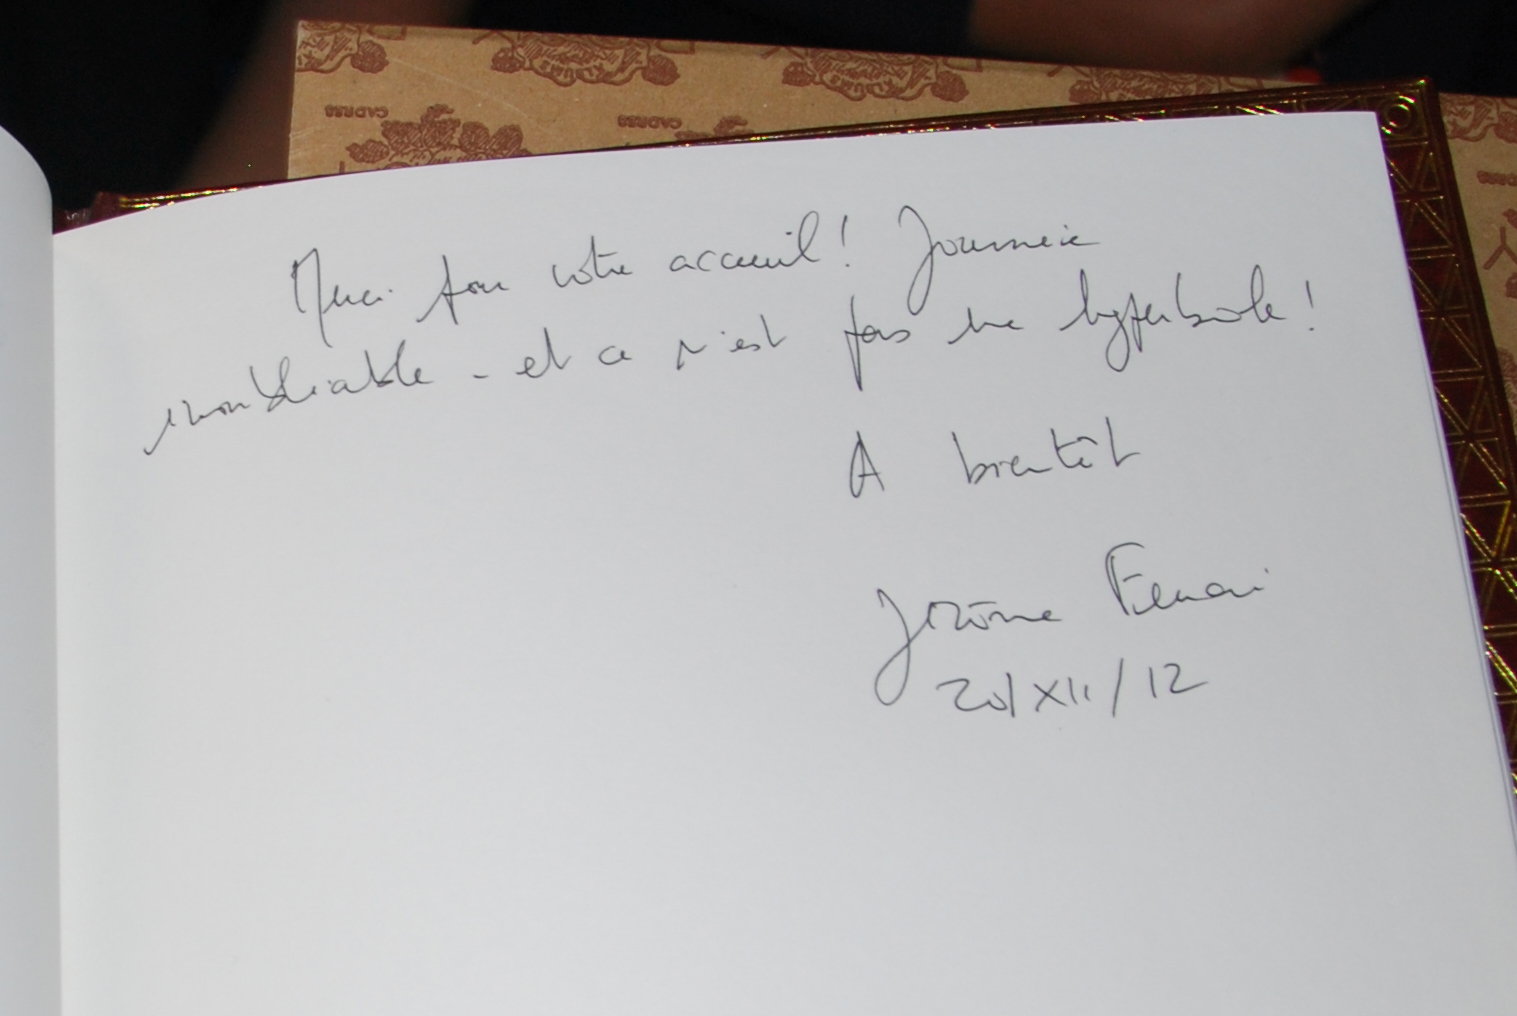 CADRES
CADRES
Merci pour votre accueil ! Journée
inoubliable - et ce n'est pas une hyperbole !
A bientôt
Jérôme Ferrari
20/XII/12